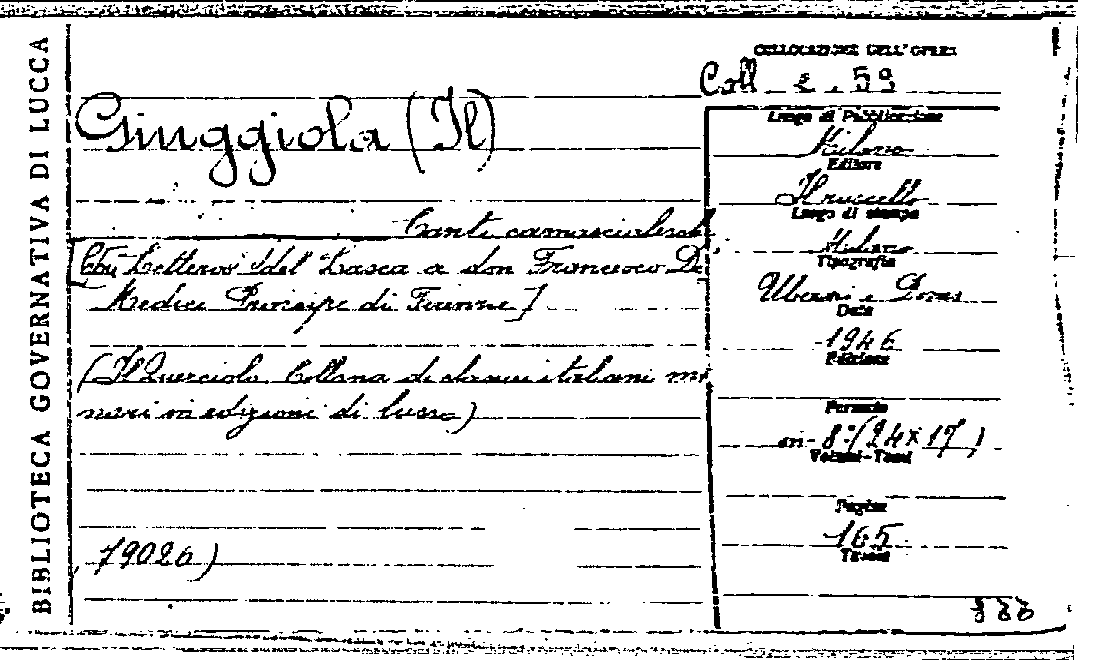 BIBLIOTECA GOVERNATIVA DI LUCCA
COLLOCAZIONE DELL'OPERA
Coll. 2.59
Giuggiola (Il)
Canti carnascialeschi
[Con Lettera del Lasca a don Francesco De
Medici Principe di Firenze]
(Il Querciolo Collana di classici italiani mi
nori in edizioni di lusso)
79026)
Luogo di Pubblicazione
Milano
Editore
Il ruscello
Luogo di stampa
Milano
Tipografia
Data
1946
Edizione
Formato
in-8°(24x17)
Volumi-Tomi
Pagine
165